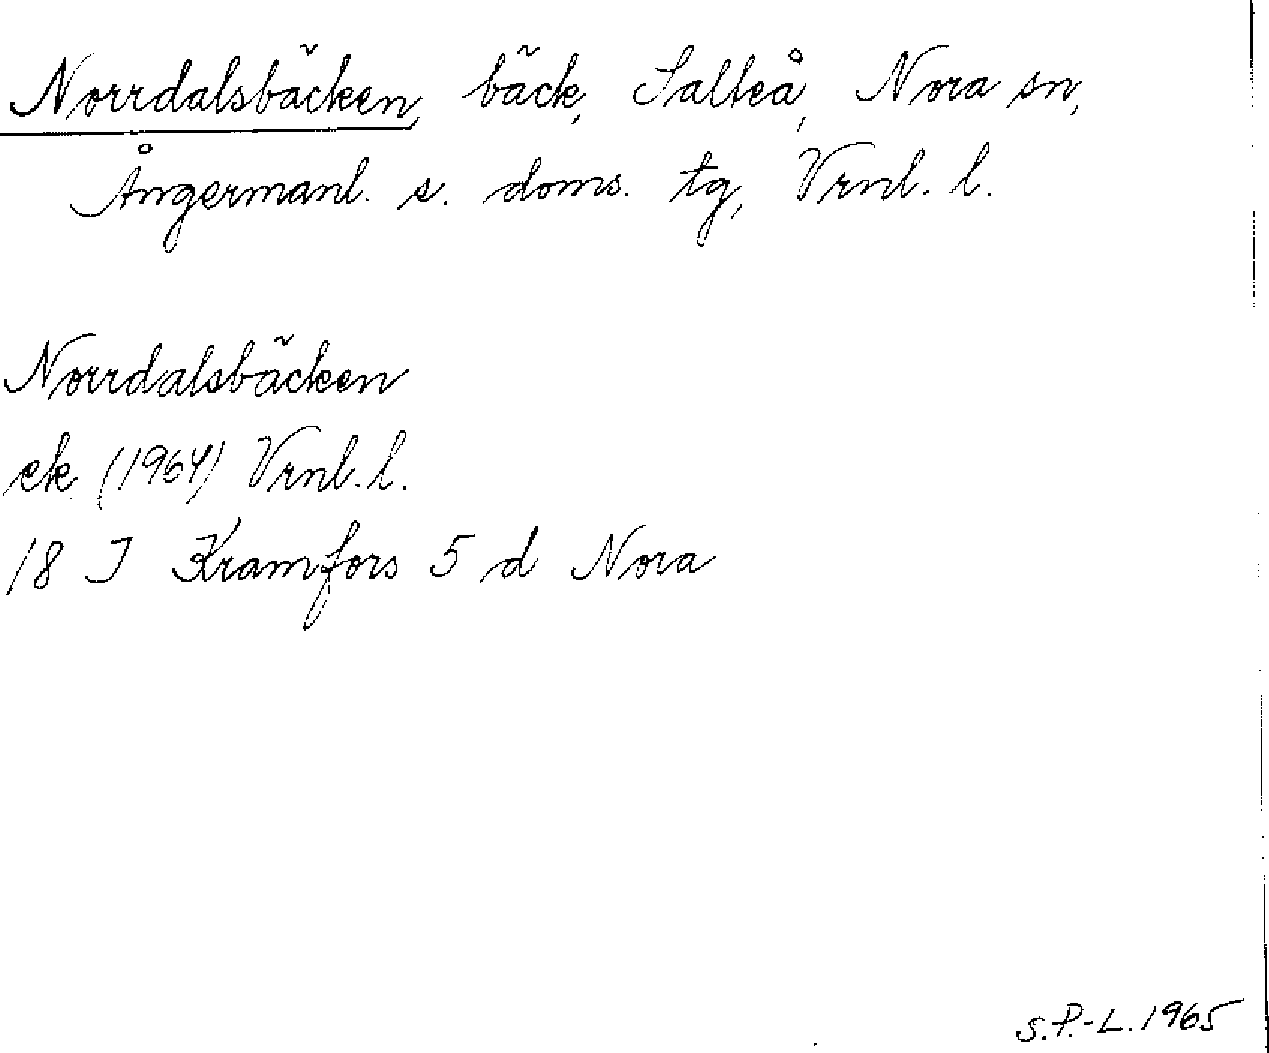 Norrdalsbäcken, bäck, Salteå, Nora sn,
Ångermanl. s. doms. tg, Vrnl. l.
Norrdalsbäcken
ek (1964) Vrnl. l.
18 I Kramfors 5 d Nora
S.P.-L. 1965